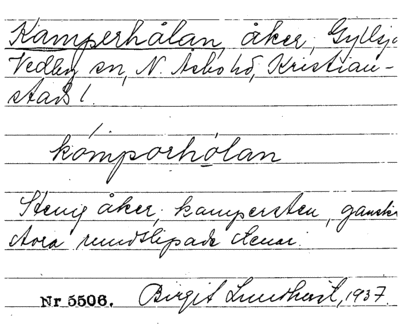 Kamperhålan, åker, Gylls
Vedby sn, N. Åsbo hd, Kristian-
stads l.
kómporhólan
Stenig åker, kampersten, ganska
stora rundslipade stenar.
Nr 5506. Birgit Lundkvist, 1937.